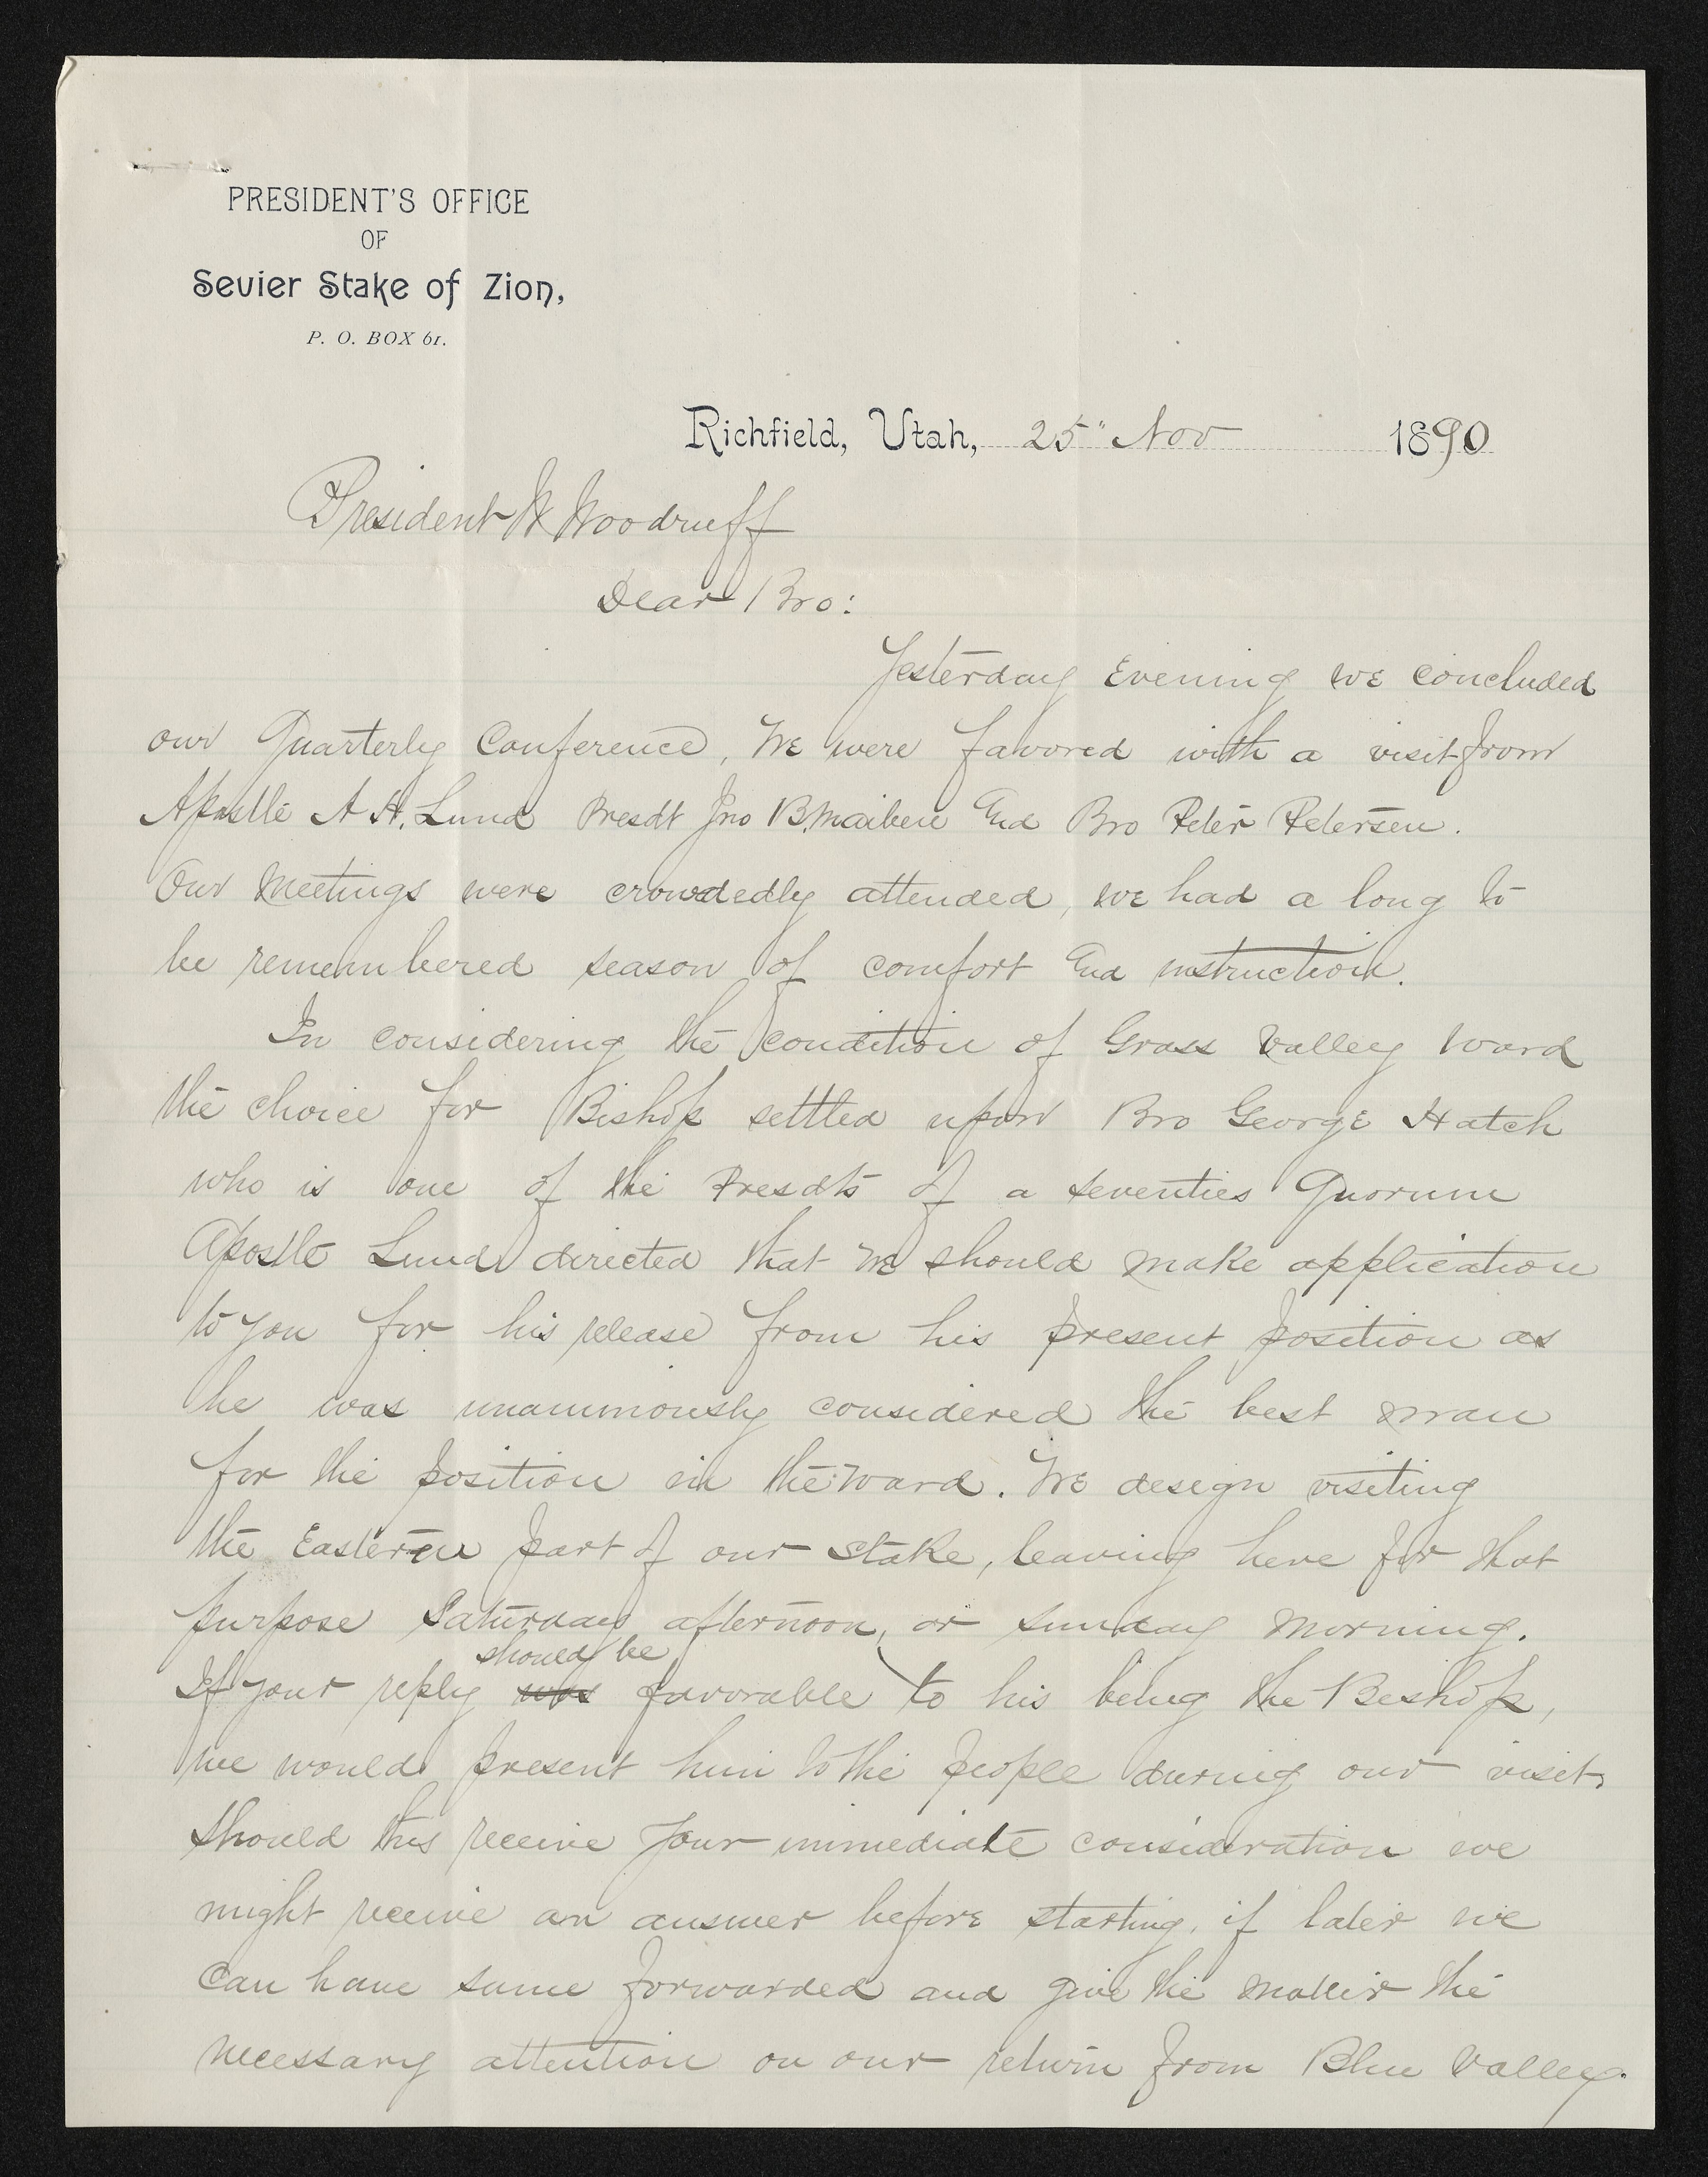 PRESIDENT'S OFFICE
OF
Sevier Stake of Zion,
P. O. BOX 61.
Richfield, Utah, 25" Nov 1890
President W Woodruff
Dear Bro:
Yesterday Evening we concluded
our Quarterly Conference, We were favored with a visit from
Apostle A H. Lund Presdt Jno B. Maiben and Bro Peter Petersen.
Our Meetings were crowdedly attended, we had a long to
be remembered season of comfort and instruction.
In considering the condition of Grass Valley Ward
the choice for Bishop settled upon Bro George Hatch
who is one of the Presdts of a seventies Quorum
Apostle Lund directed that we should make application
to you for his release from his present position as
he was unanimously considered the best man
for the position in the Ward. We design visiting
the Eastern part of our Stake, leaving here for that
purpose Saturday afternoon, or Sunday Morning.
should be
If your reply was favorable to his being the Bishop,
we would present him to the people during our visit,
should this receive your immediate consideration we
might receive an answer before starting, if later we
can have same forwarded and give the matter the
necessary attention on our return from Blue Valley.